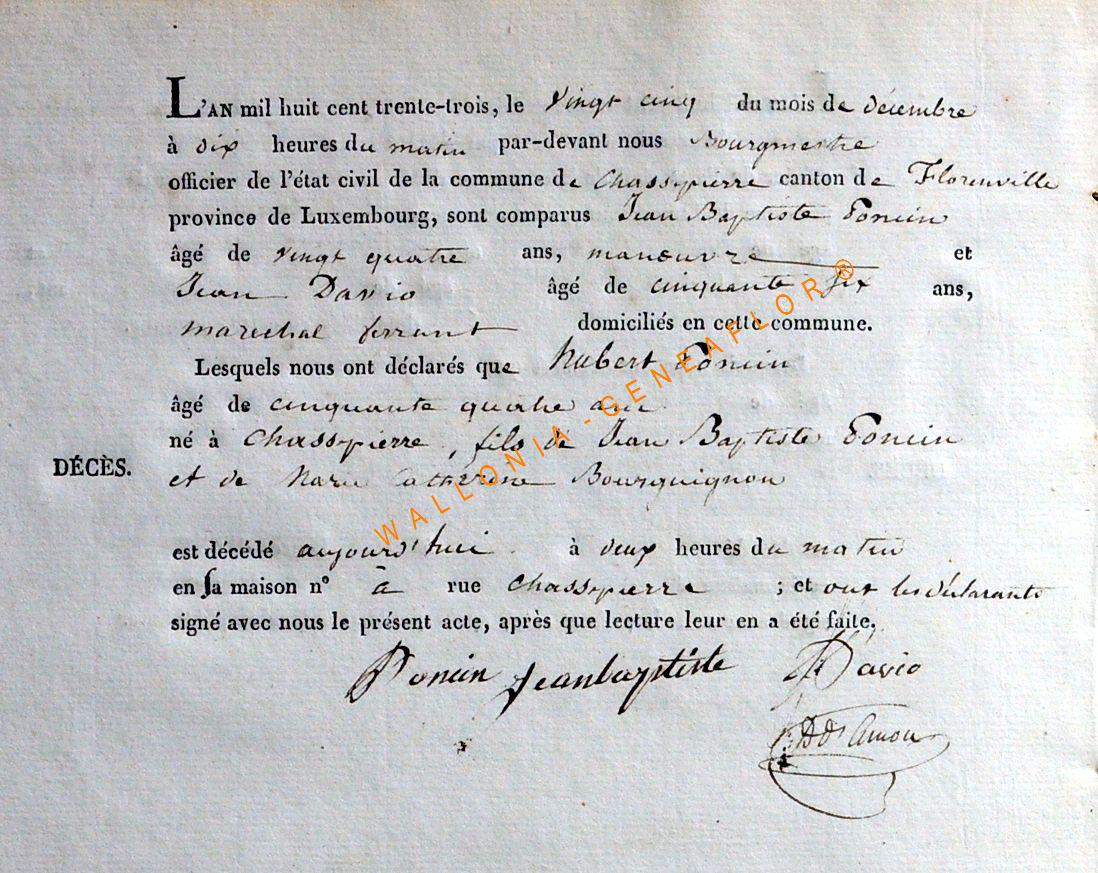 L'AN mil huit cent trente-trois, le vingt cinq du mois de décembre
à dix heures du matin par-devant nous Bourgmestre
officier de l'état civil de la commune de Chassepierre canton de Florenville
province de Luxembourg, sont comparus Jean Baptiste Poncin
âgé de vingt quatre ans, manoeuvre et
Jean David âgé de cinquante six ans,
marechal ferrant domiciliés en cette commune.
Lesquels nous ont déclarés que hubert Poncin
âgé de cinquante quatre ans
né à Chassepierre, fils de Jean Baptiste Poncin
DÉCÈS.
et de Marie Catherine Bourguignon
est décédé aujourd'hui à deux heures du matin
en sa maison n° à rue Chassepierre ; et ont les déclarants
signé avec nous le présent acte, après que lecture leur en a été faite.
Poncin Jeanbaptiste David
WALLONIA-GENEAFLOR®